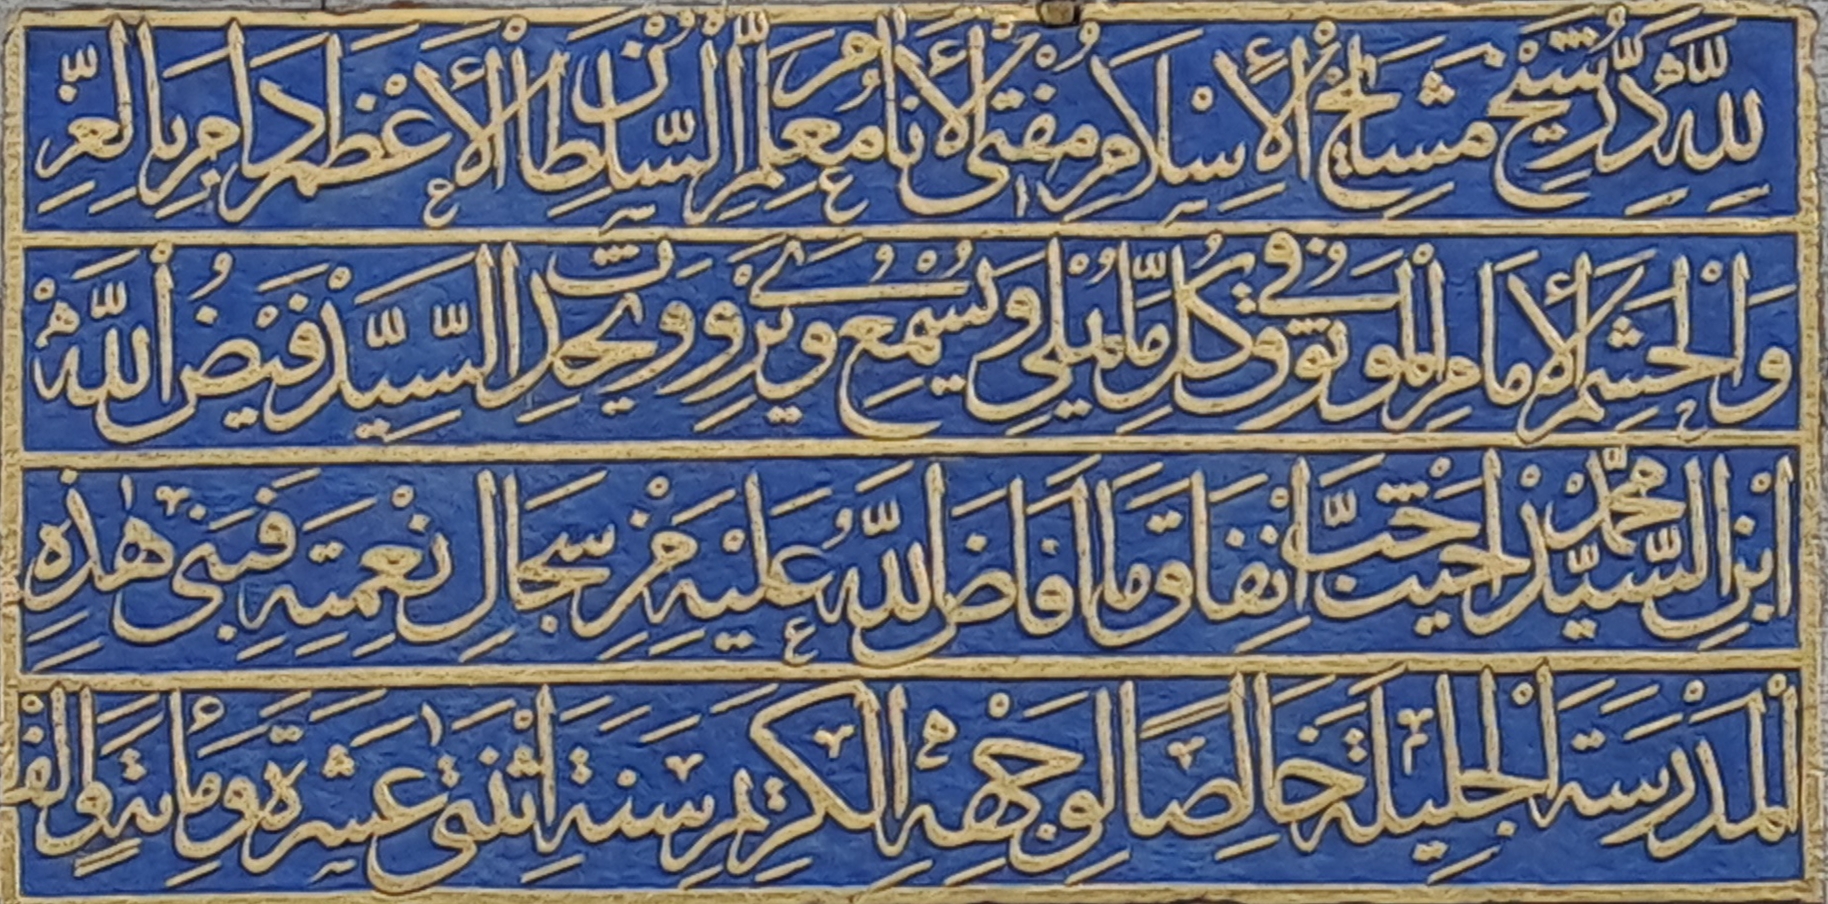 لِلّٰهِ دَرُّ شَيْخِ مَشَايِخِ الْإِسْلَامِ مُفْتِي الْأَنَامِ مُعَلِّمِ السُّلْطَانِ الْأَعْظَمِ دَامَ بِالْعِزِّ
وَالْحَشَمِ الْإِمَامِ الْمَوْثُوقِ فِي كُلِّ مَا يُمْلِي وَيُسْمِعُ وَيَرْوِي وَيُحَدِّثُ السَّيِّدْ فَيْضُ اللّٰهْ
ابْنِ السَّيِّدْ مُحَمَّدْ احَبَّ انْفَاقَ مَا افَاضَ اللّٰهُ عَلَيْهِ مِنْ سِجَالِ نِعْمَتِهِ فَبَنَى هٰذِهِ
الْمَدْرَسَةَ الْجَلِيلَةَ خَالِصًا لِوَجْهِهِ الْكَرِيمِ سَنَةَ اثْنَتَىْ عَشْرَةَ وَمِائَةٍ وَالْف